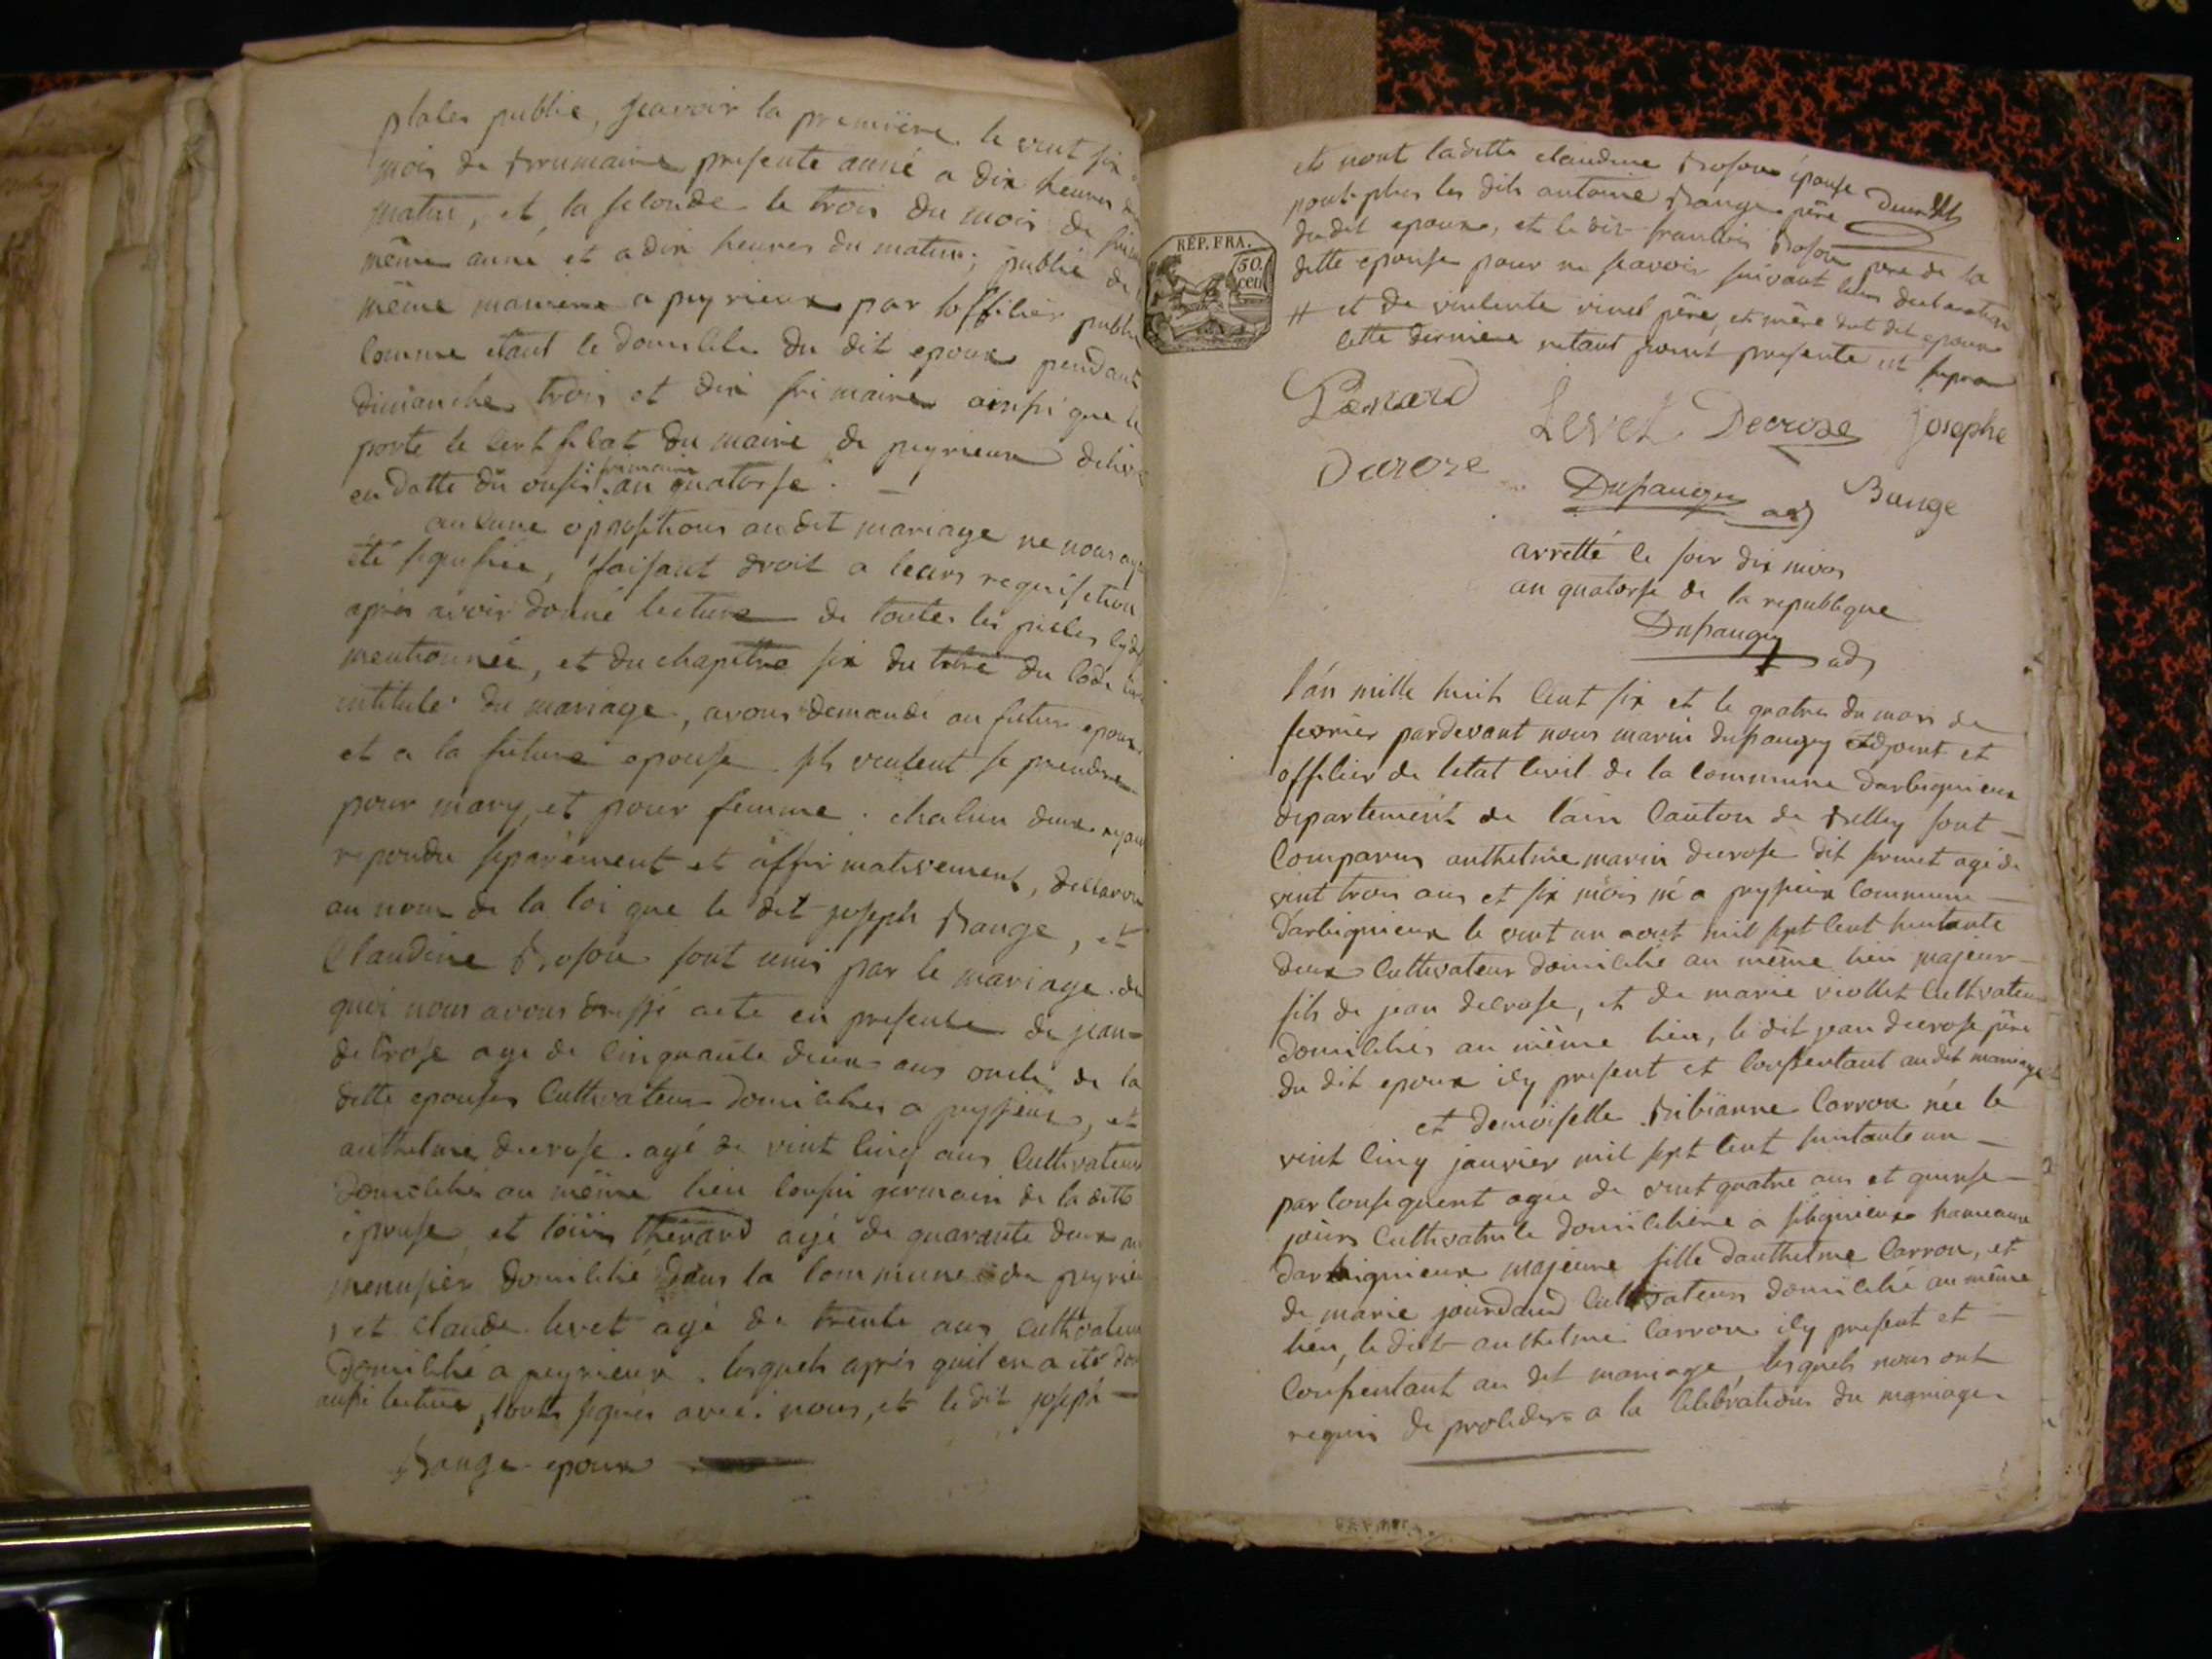 plases public, sçavoir la premiere le vint six
mois de brumaire presente anné a dix heures du
matin, et la seconde le trois du mois de
même anné et a dix heures du matin, publié de
même maniere a peyrieux par l'officier public
comme etant le domicile du dit epoux pendant
dimanches trois et dix frimaire ainsi que le
porte le certificat du maire de peyrieux delivré
en datte du onse frimaire an quatorse . —
aucune oppositions audit mariage ne nous ayant
été signifiée, faisant droit a leurs requisition
après avoir donné lecture de toutes les pieces
mentionnée, et du chapitre six du titre du code
intitulé du mariage, avons demandé au futur epoux
et a la future epouse sils veulent se prendre
pour mary, et pour femme . chacun deux ayant
repondu séparément et affirmativement, declarons
au nom de la loi que le dit joseph Bange, et
Claudine Broson sont unis par le mariage . de
quoi nous avons dressé acte en presence de jean
decrose agé de cinquante deux ans oncle de la
ditte epouse cultivateur domiciliés a peyssieux, et
anthelme decrose . agé de vint cinq ans cultivateur
domicilié au même lieu cousin germain de la ditte
épouse et loüis thenard agé de quarante deux
menusier domicilié dans la commune de peyrieu
et claude levet agé de trente ans cultivateur
domicilié a peyrieux . lesquels après quil en a été
aussi lecture, l'ont signés avec nous, et le dit joseph
Bange epoux
et nont laditte claudine Broson épouse
nont plus les dits antoine Bange père
dudit epoux, et le dit francois Broson pere de la
ditte epouse pour ne sçavoir suivant leurs declaration
# et de vincente vinel père, et mère dudit epoux
cette derniere netant point presente
RÉP. FRA.
50.
cen
Penard
Levet Decroze Josephe
Decroze
Dupaugey adj Bange
arretté le soir dix nivos
an quatorse de la republique
Dupaugey adj
l'án mille huit cent six et le quatre du mois de
fevrier pardevant nous marin dupaugey adjoint et
officier de letat civil de la commune Darbignieux
departement de l'ain Canton de Belley sont —
Comparus anthelme marin decrose dit agé de
vint trois ans et six mois né a peyssieux commune —
Darbignieux le vint un aout mil sept cent huitante
deux cultivateur domicilié au même lieu majeur
fils de jean decrose, et de marie viollet cultivateurs
domiciliés au même lieu, le dit jean decrose père
du dit epoux icy present et consentant audit mariage
et demoiselle Bibianne Carron née le
vint cinq janvier mil sept cent huitante un —
par consequent agée de vint quatre ans et quinse —
jours cultivatrice domiciliére a hameaux
darbignieux majeure fille danthelme Carron, et
de marie jourdand cultivateurs domicilié au même
lieu, le dit anthelme Carron icy present et —
consentant au dit mariage lesquels nous ont
requis de proceder a la célébrations du mariage